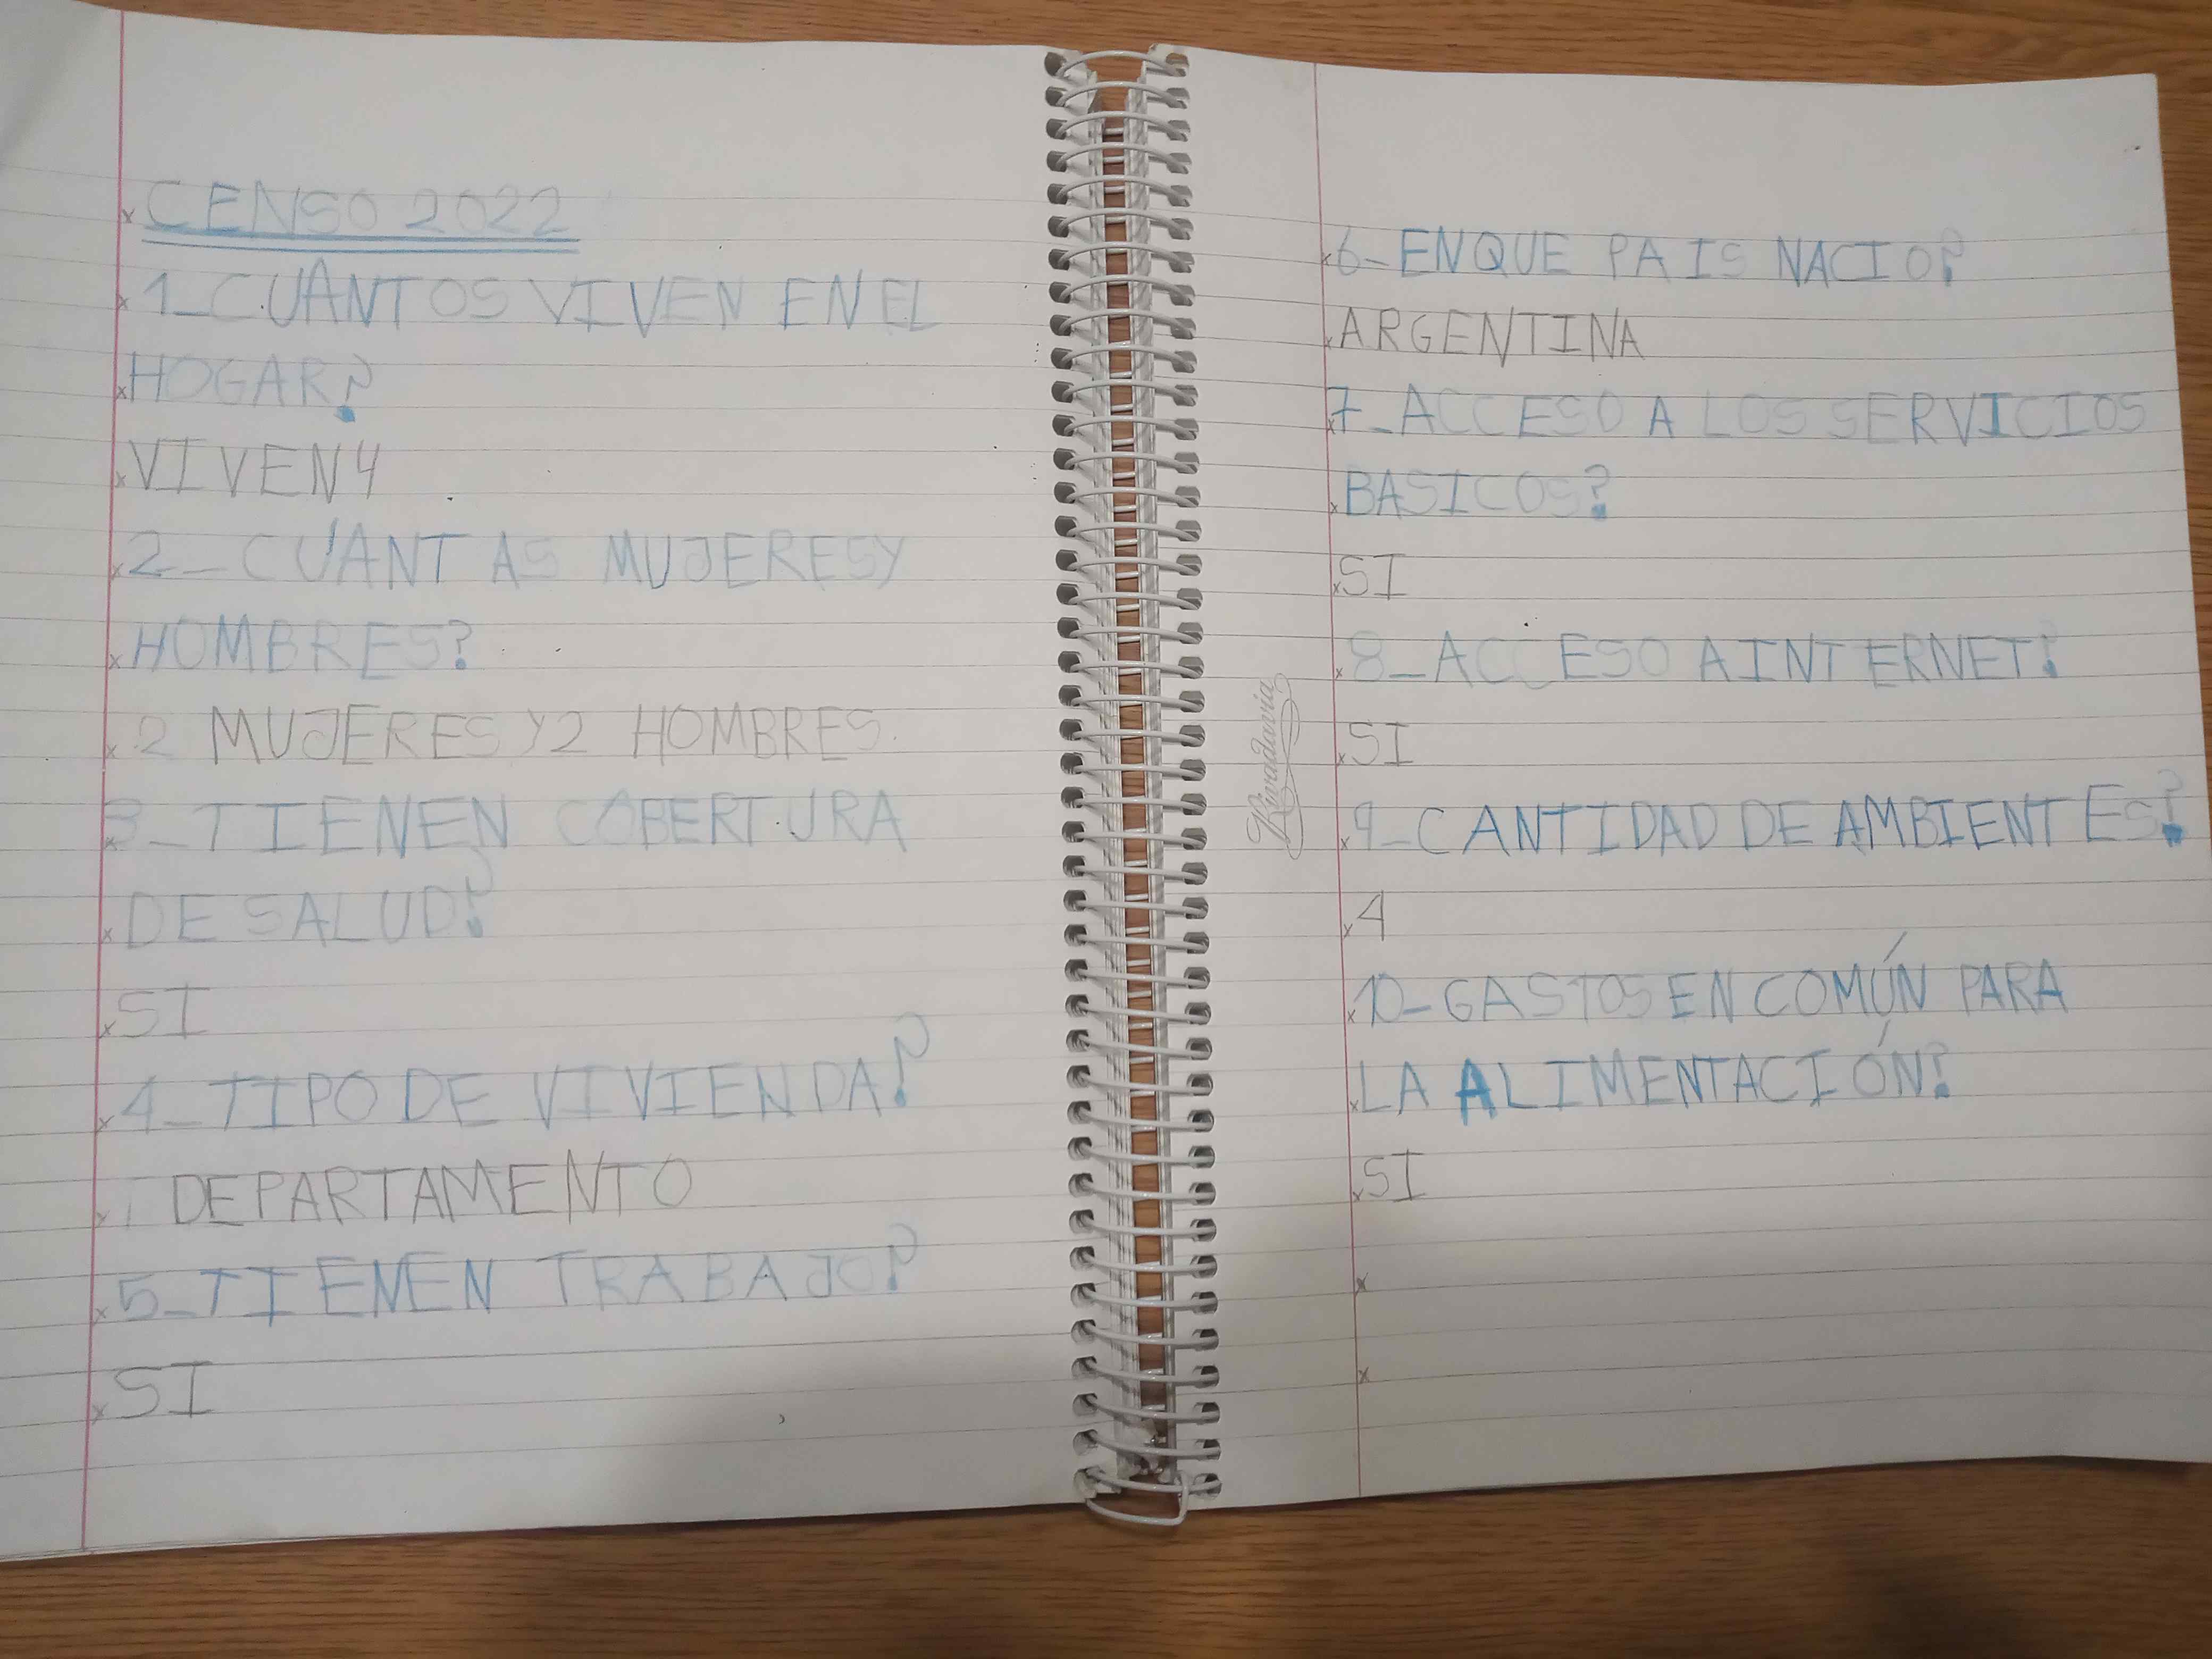 CENSO 2022
1_CUÁNTOS VIVEN EN EL
HOGAR?
VIVEN 4
2_ CUÁNTAS MUJERES Y
HOMBRES?
2 MUJERES Y 2 HOMBRES.
3_TIENEN COBERTURA
DE SALUD?
SI
4_TIPO DE VIVIENDA?
DEPARTAMENTO
5_TIENEN TRABAJO?
SI
6_EN QUE PAIS NACIO?
ARGENTINA
7_ACCESO A LOS SERVICIOS
BASICOS?
SI
8_ACCESO A INTERNET?
SI
9_CANTIDAD DE AMBIENTES?
4
10_GASTOS EN COMÚN PARA
LA ALIMENTACIÓN?
SI
Rivadavia